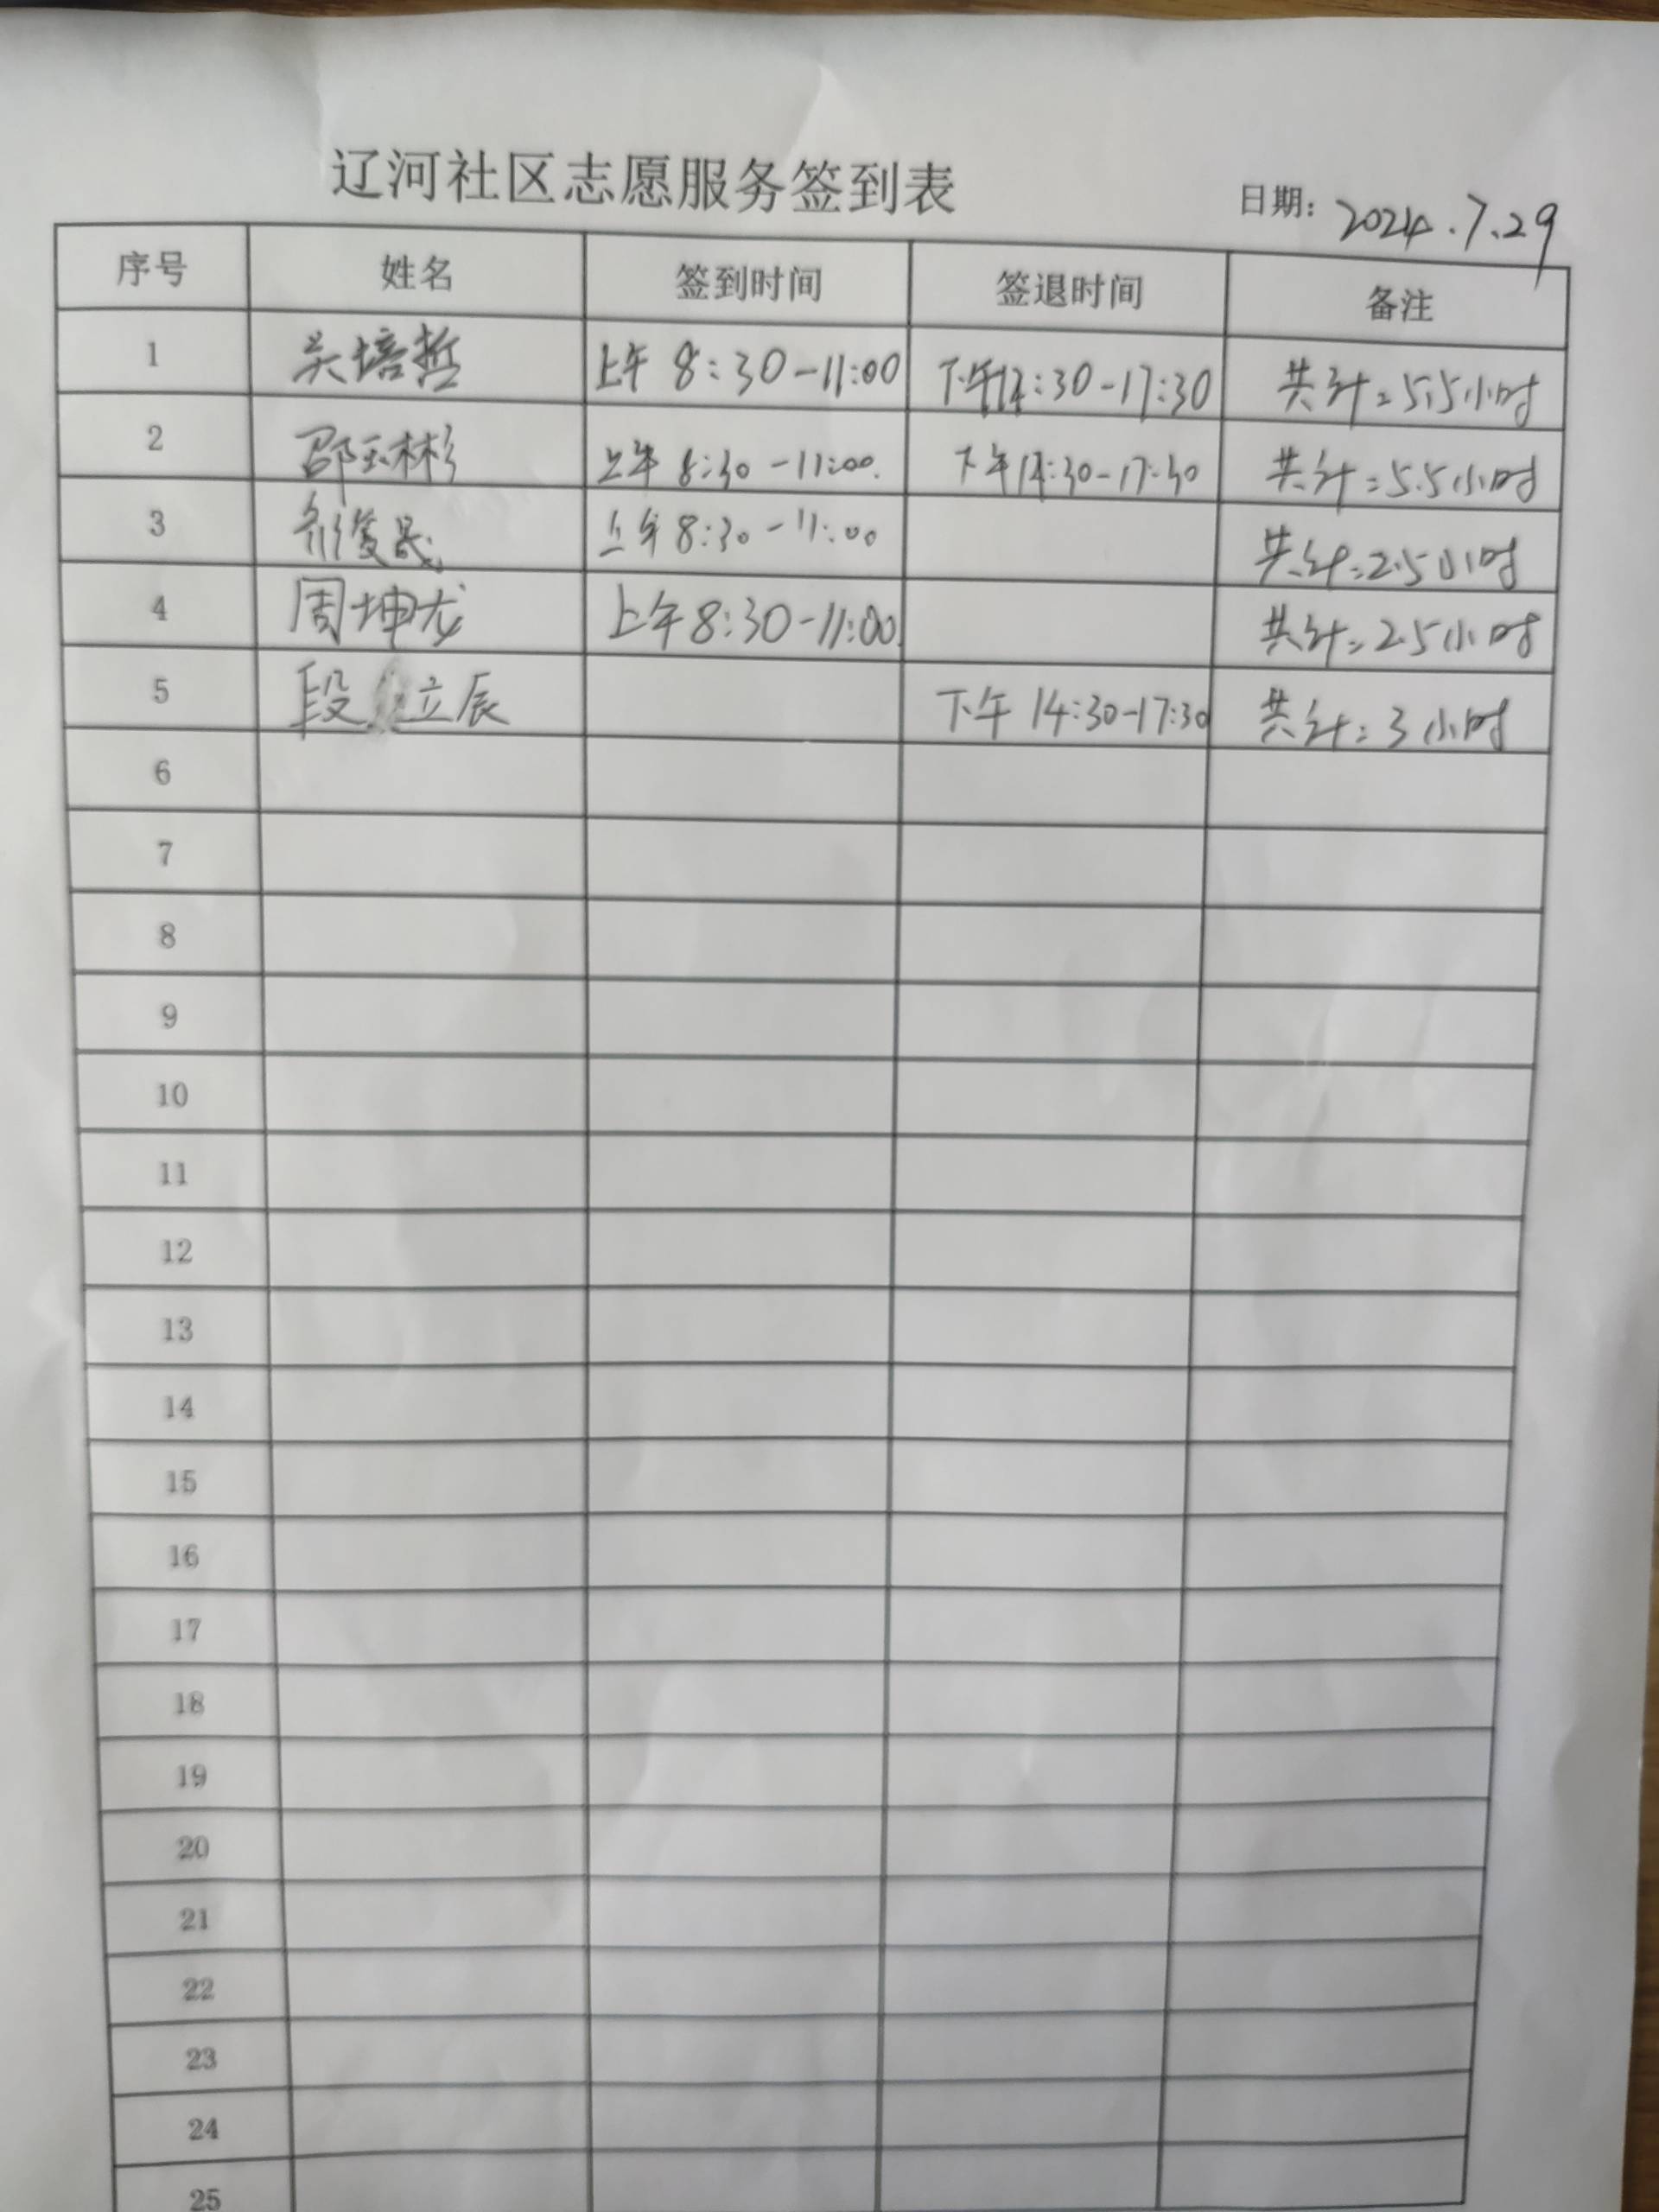 辽河社区志愿服务签到表
日期: 2024.7.29
序号 姓名 签到时间 签退时间 备注
1 吴培哲 上午 8:30-11:00 下午14:30-17:30 共计:5.5小时
2 邵玉彬 上午 8:30-11:00. 下午14:30-17:30 共计:5.5小时
3 上午8:30-11:00 共计:2.5小时
4 周坤龙 上午8:30-11:00 共计:2.5小时
5 段立辰 下午 14:30-17:30 共计:3小时
6
7
8
9
10
11
12
13
14
15
16
17
18
19
20
21
22
23
24
25